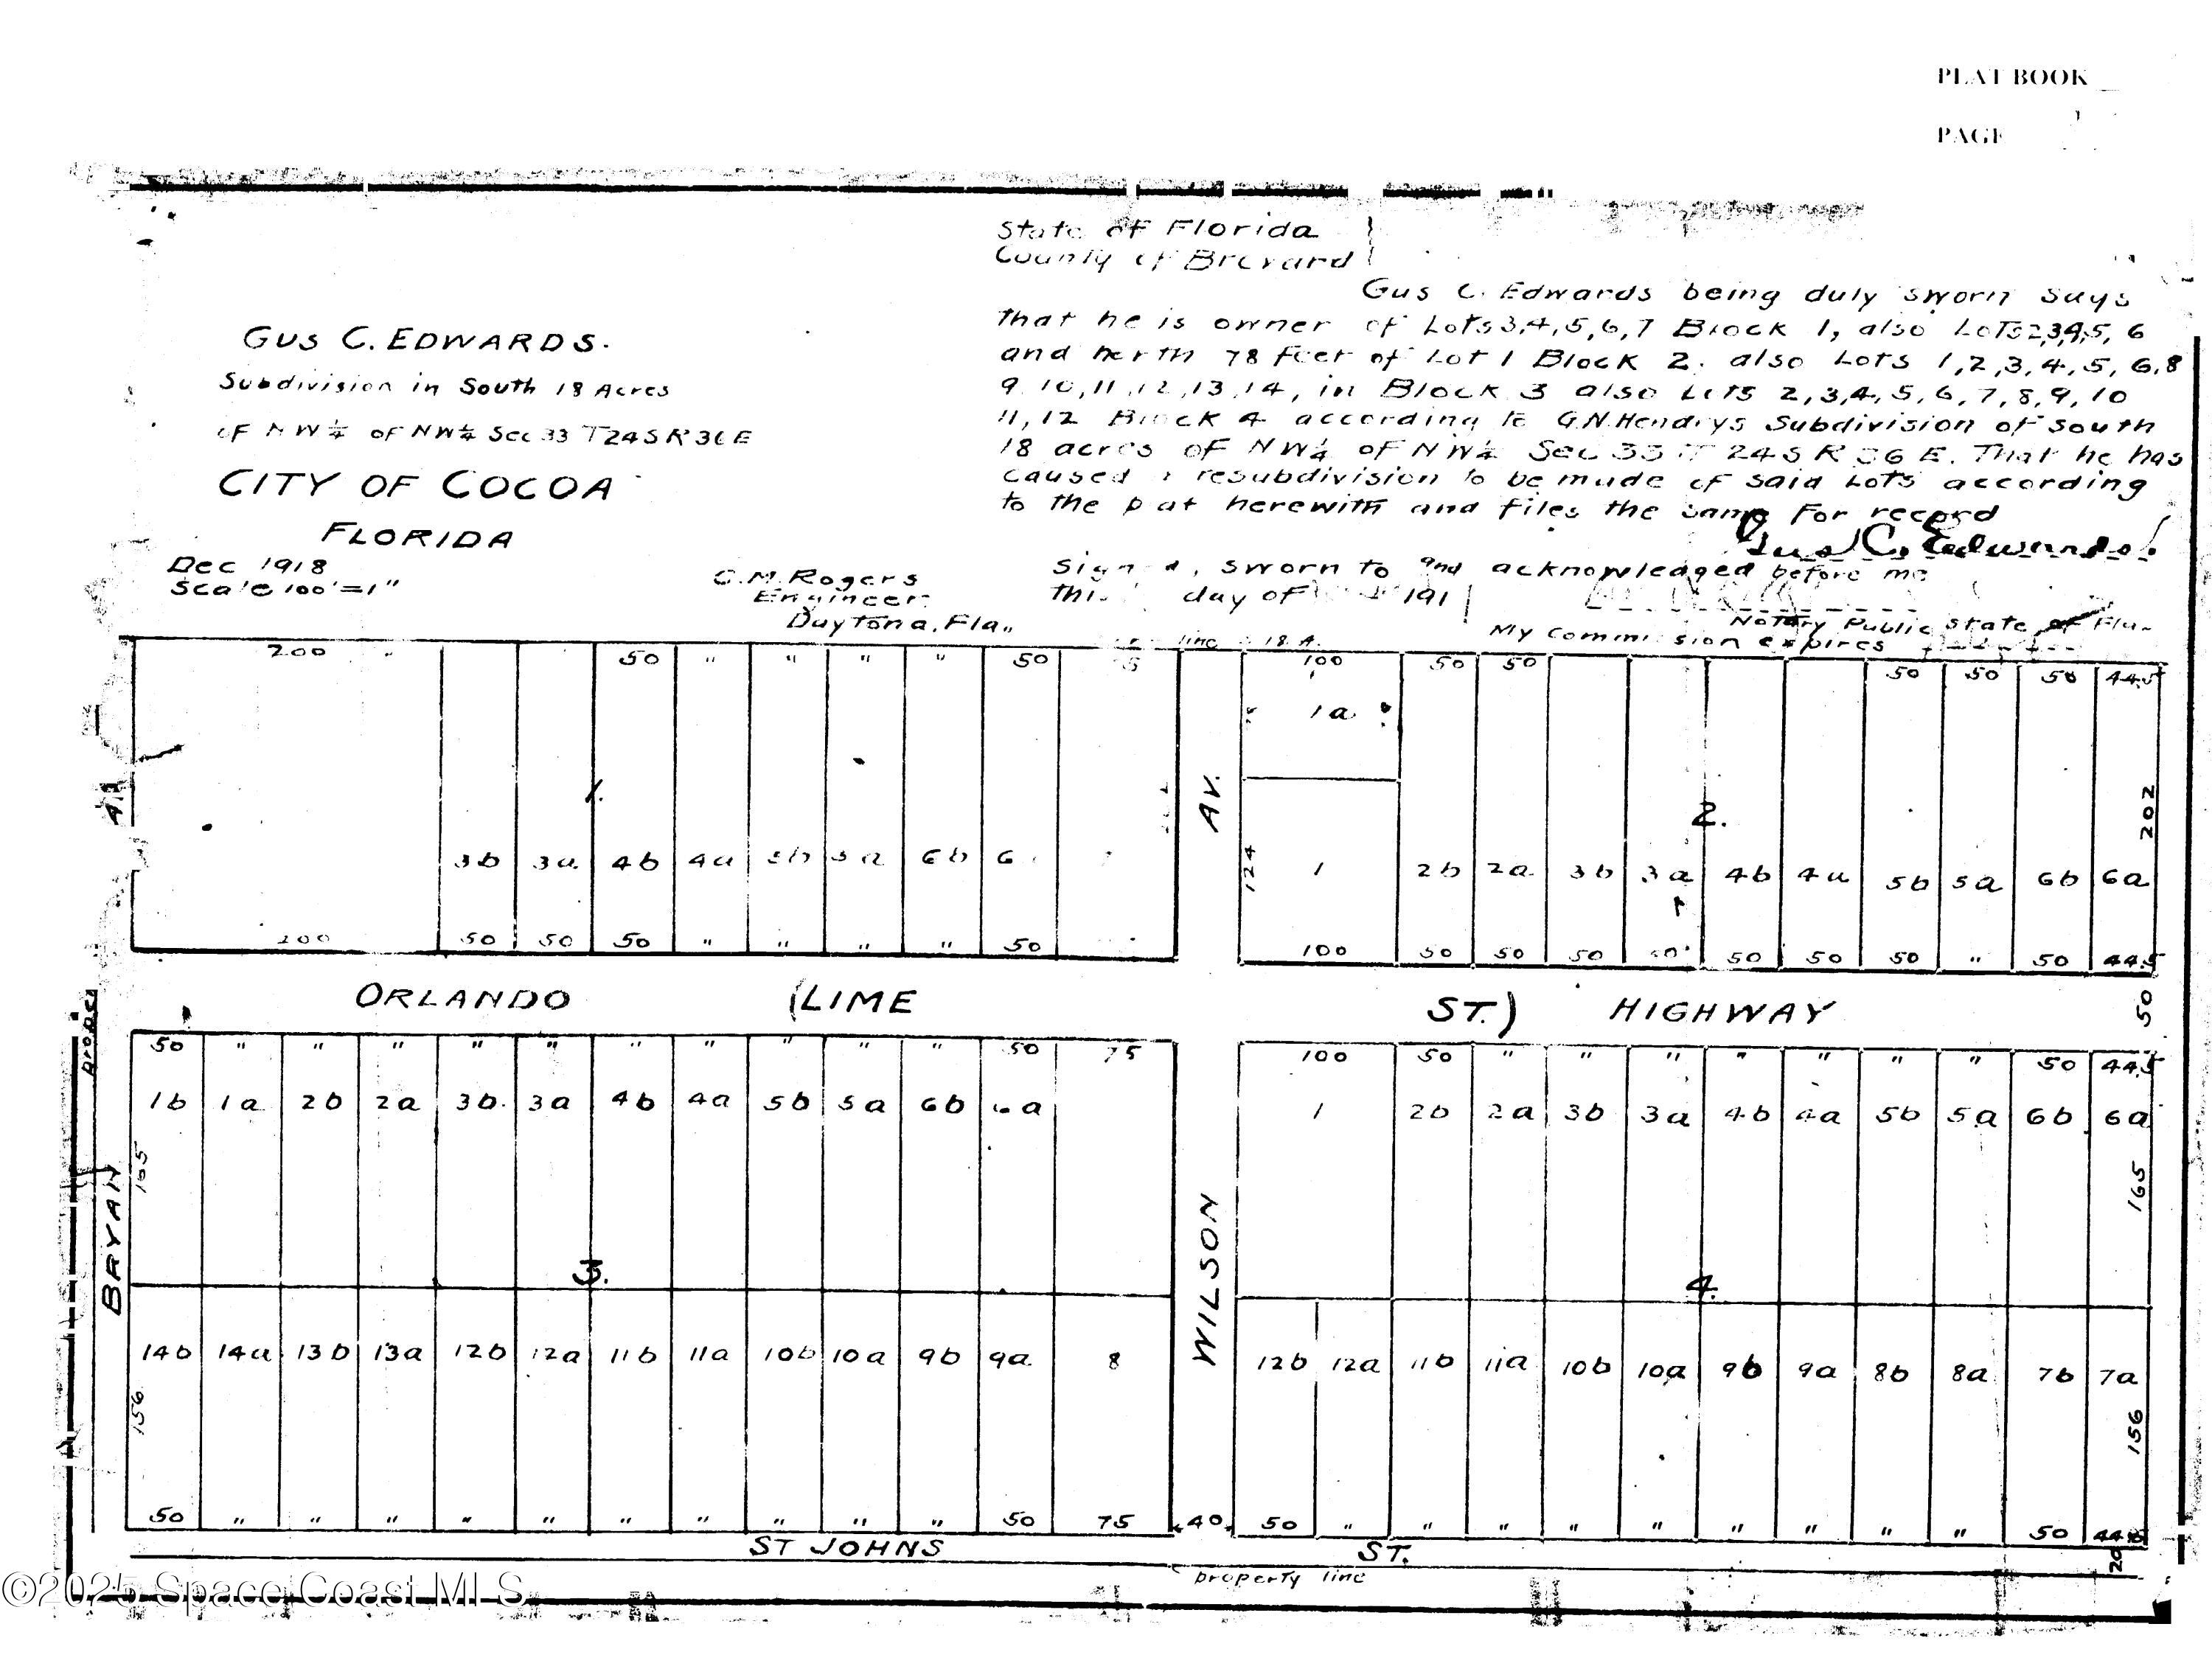 PLAT BOOK
PAGE
State of Florida
County of Brevard
Gus C. Edwards being duly sworn says
that he is owner of Lots 3,4,5,6,7 Block 1, also Lots 2,3,4,5,6
and north 78 feet of Lot 1 Block 2. also Lots 1,2,3,4,5,6,8
9,10,11,12,13,14, in Block 3 also Lots 2,3,4,5,6,7,8,9,10
11,12 Block 4 according to G.N. Hendrys Subdivision of South
18 acres of NW¼ of NW¼ Sec 33 T 24 S R 36 E. That he has
caused a resubdivision to be made of said Lots according
to the plat herewith and files the same for record
Gus C. Edwards.
Signed, sworn to and acknowledged before me
this day of 191
Notary Public State of Fla.
My Commission expires
GUS C. EDWARDS.
Subdivision in South 18 Acres
of NW¼ of NW¼ Sec 33 T24S R36E
CITY OF COCOA
FLORIDA
Dec 1918
Scale 100'=1"
C.M. Rogers
Engineer
Daytona, Fla.
line 18 A.
200 " 50 " " " " 50
100 50 50 50 50 50 44.5
1a
1.
AV.
2.
202
3b 3a 4b 4a 5b 5a 6b 6
124
1 2b 2a 3b 3a 4b 4a 5b 5a 6b 6a
200 50 50 50 " " " " 50
100 50 50 50 50 50 50 50 " 50 44.5
ORLANDO (LIME ST.) HIGHWAY
50
50 " " " " " " " " " " 50 75
100 50 " " " " " " " 50 44.5
1b 1a 2b 2a 3b 3a 4b 4a 5b 5a 6b 6a
1 2b 2a 3b 3a 4b 4a 5b 5a 6b 6a
165
165
BRYAN
WILSON
3.
4.
14b 14a 13b 13a 12b 12a 11b 11a 10b 10a 9b 9a 8
12b 12a 11b 11a 10b 10a 9b 9a 8b 8a 7b 7a
156
156
50 " " " " " " " " " " 50 75
40
50 " " " " " " " " " 50 44.5
ST JOHNS ST.
20
property line
©2025 Space Coast MLS